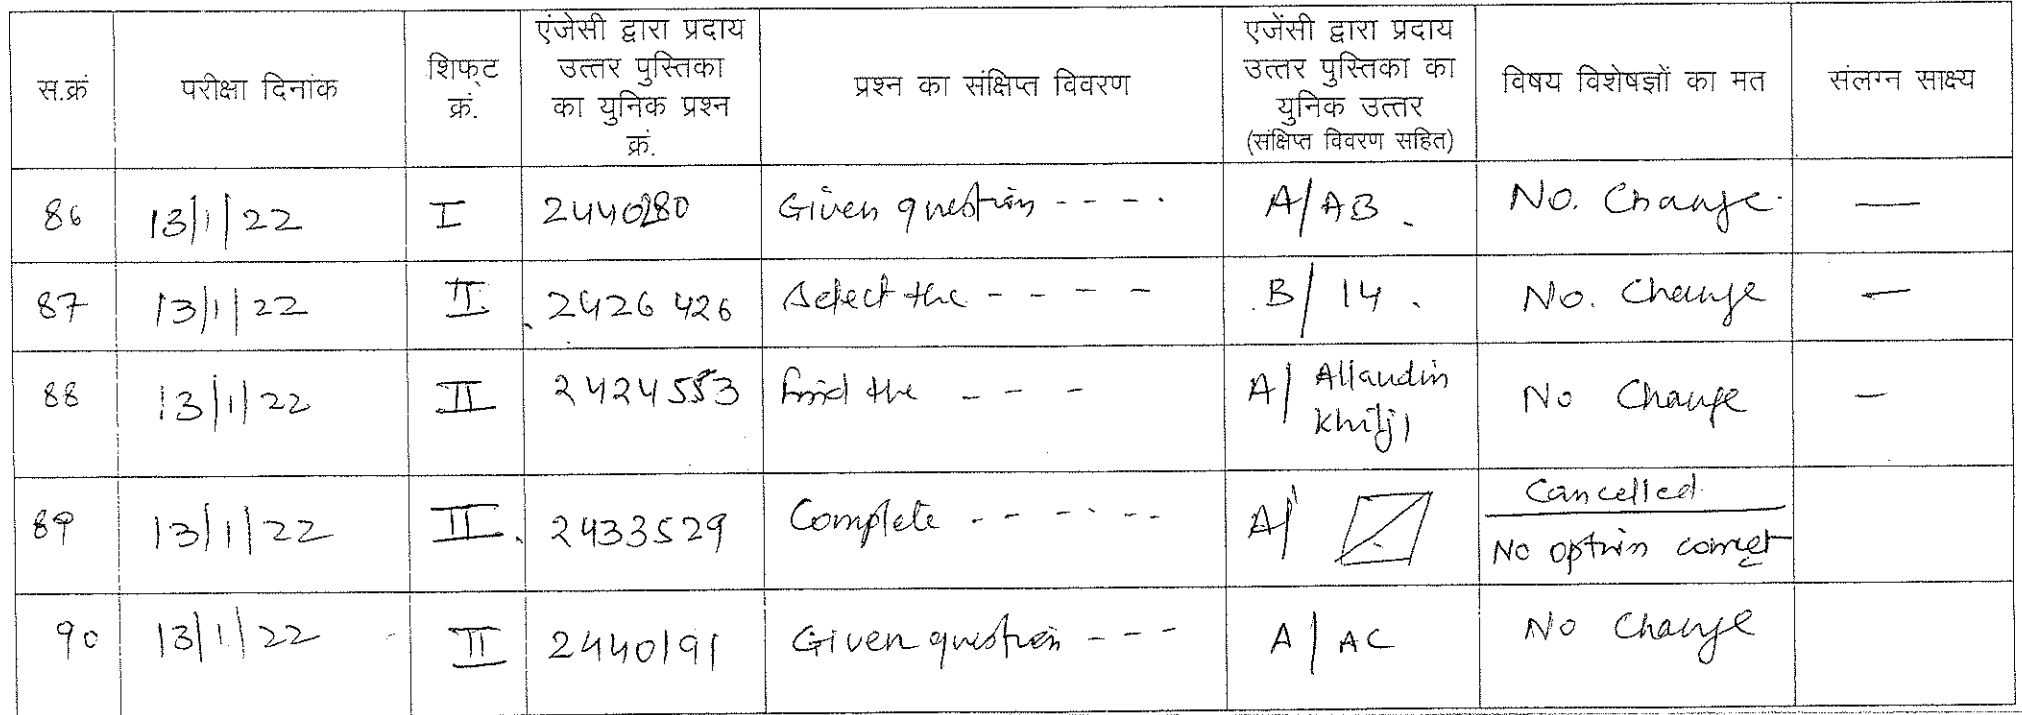 स.क्रं
परीक्षा दिनांक
शिफ्ट
क्रं.
एंजेसी द्वारा प्रदाय
उत्तर पुस्तिका
का युनिक प्रश्न
क्रं.
प्रश्न का संक्षिप्त विवरण
एजेंसी द्वारा प्रदाय
उत्तर पुस्तिका का
युनिक उत्तर
(संक्षिप्त विवरण सहित)
विषय विशेषज्ञों का मत
संलग्न साक्ष्य
86 13/1/22 I 2440280 Given question ---- A/AB. No. Change. —
87 13/1/22 II 2426426 Select the ---- B/14. No. Change —
88 13/1/22 II 2424553 find the --- A/ Allaudin
Khilji
No Change —
89 13/1/22 II. 2433529 Complete ------ A/
Cancelled
No option correct
90 13/1/22 II 2440191 Given question --- A/AC No Change